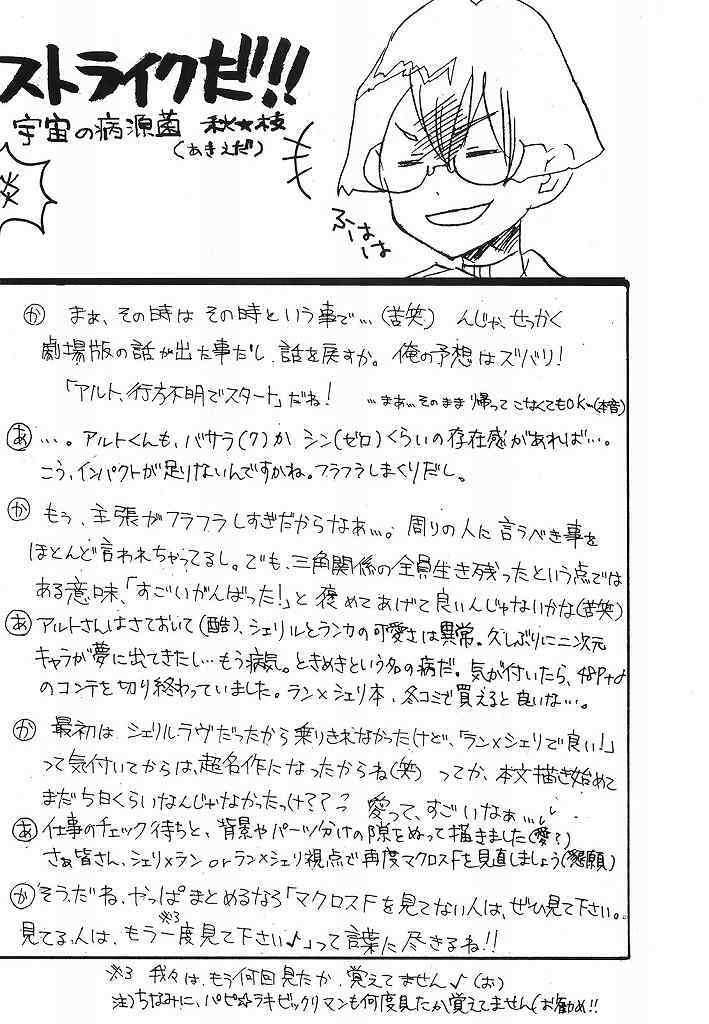 ストライクだ!!
宇宙の病源菌 秋★枝
(あきえだ)
炎
ふーはは
か まぁ、その時は その時という事で…(苦笑) んじゃ、せっかく
劇場版の話が出た事だし、話を戻すか。俺の予想はズバリ!
「アルト、行方不明でスタート」だね! …まぁ…そのまま帰ってこなくてもOK…(本音)
あ …。アルトくんも、バサラ(7)か シン(ゼロ)くらいの存在感があれば…。
こう、インパクトが足りないんですかね。フラフラしまくりだし。
か もぅ、主張がフラフラしすぎだからなぁ…。周りの人に言うべき事を
ほとんど言われちゃってるし。でも、三角関係の全員生き残ったという点では
ある意味、「すごいがんばった!」と 褒めてあげて良いんじゃないかな(苦笑)
あ アルトさんはさておいて(酷)、シェリルとランカの可愛さは異常。久しぶりに二次元
キャラが夢に出てきたし…もう病気。ときめきという名の病だ。気が付いたら、48P+α
のコンテを切り終わっていました。ラン×シェリ本、冬コミで買えると良いな…。
か 最初は シェリルラヴだったから乗りきれなかったけど、「ラン×シェリで良い!」
って気付いてからは、超名作になったからね(笑) ってか、本文描き始めて
まだ5日くらいなんじゃなかったっけ??? 愛って、すごいなぁ…
あ 仕事のチェック待ちと、背景やパーツ分けの隙をぬって描きました(愛?)
さぁ皆さん、シェリ×ラン orラン×シェリ視点で再度マクロスFを見直しましょう(懇願)
か そうだね、やっぱまとめるなら「マクロスFを見てない人は、ぜひ見て下さい。
※3
見てる人は、もう一度見て下さい♪」って言葉に尽きるね!!
※3 我々は、もう何回見たか、覚えてません♪(お)
注)ちなみに、パピ☆ラキビックリマンも何度見たか覚えてません(お勧め!!